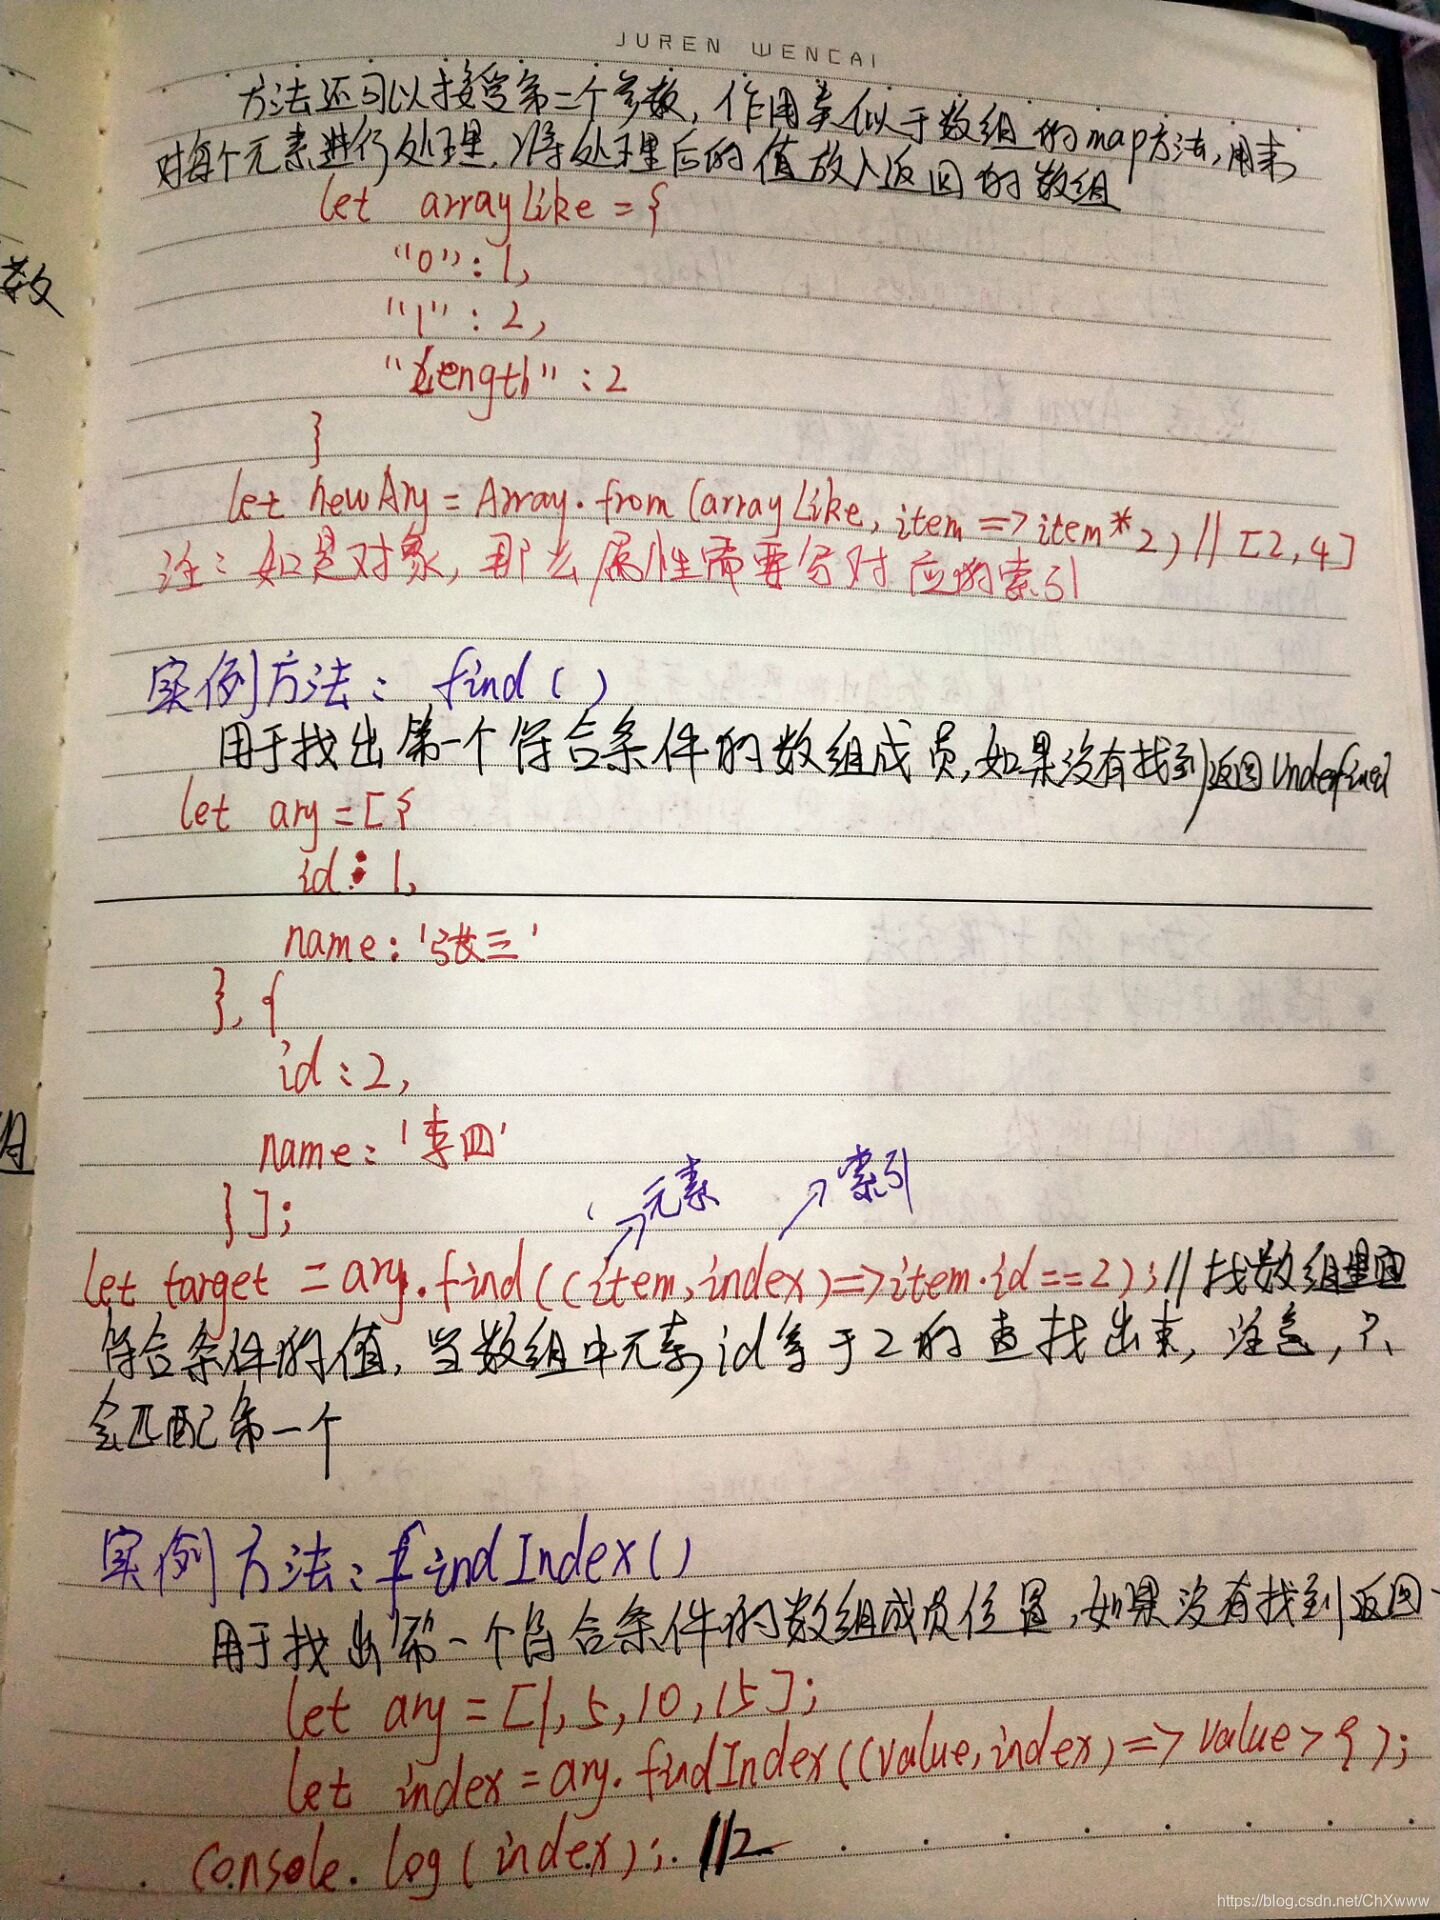 JUREN WENCAI
方法还可以接受第二个参数，作用类似于数组的map方法，用来
对每个元素进行处理，将处理后的值放入返回的数组
let arrayLike = {
"0": 1,
"1": 2,
"length": 2
}
let newAry = Array.from(arrayLike, item => item*2) // [2,4]
注：如是对象，那么属性需要写对应的索引
数
实例方法：find()
用于找出第一个符合条件的数组成员，如果没有找到返回undefined
let ary = [{
id: 1,
name: '张三'
}, {
id: 2,
name: '李四'
}];
组
元素 索引
let target = ary.find((item, index) => item.id == 2); // 找数组里面
符合条件的值，当数组中元素id等于2的查找出来，注意，只
会匹配第一个
实例方法：findIndex()
用于找出第一个符合条件的数组成员位置，如果没有找到返回-
let ary = [1, 5, 10, 15];
let index = ary.findIndex((value, index) => value > 9);
console.log(index); //2
https://blog.csdn.net/ChXwww